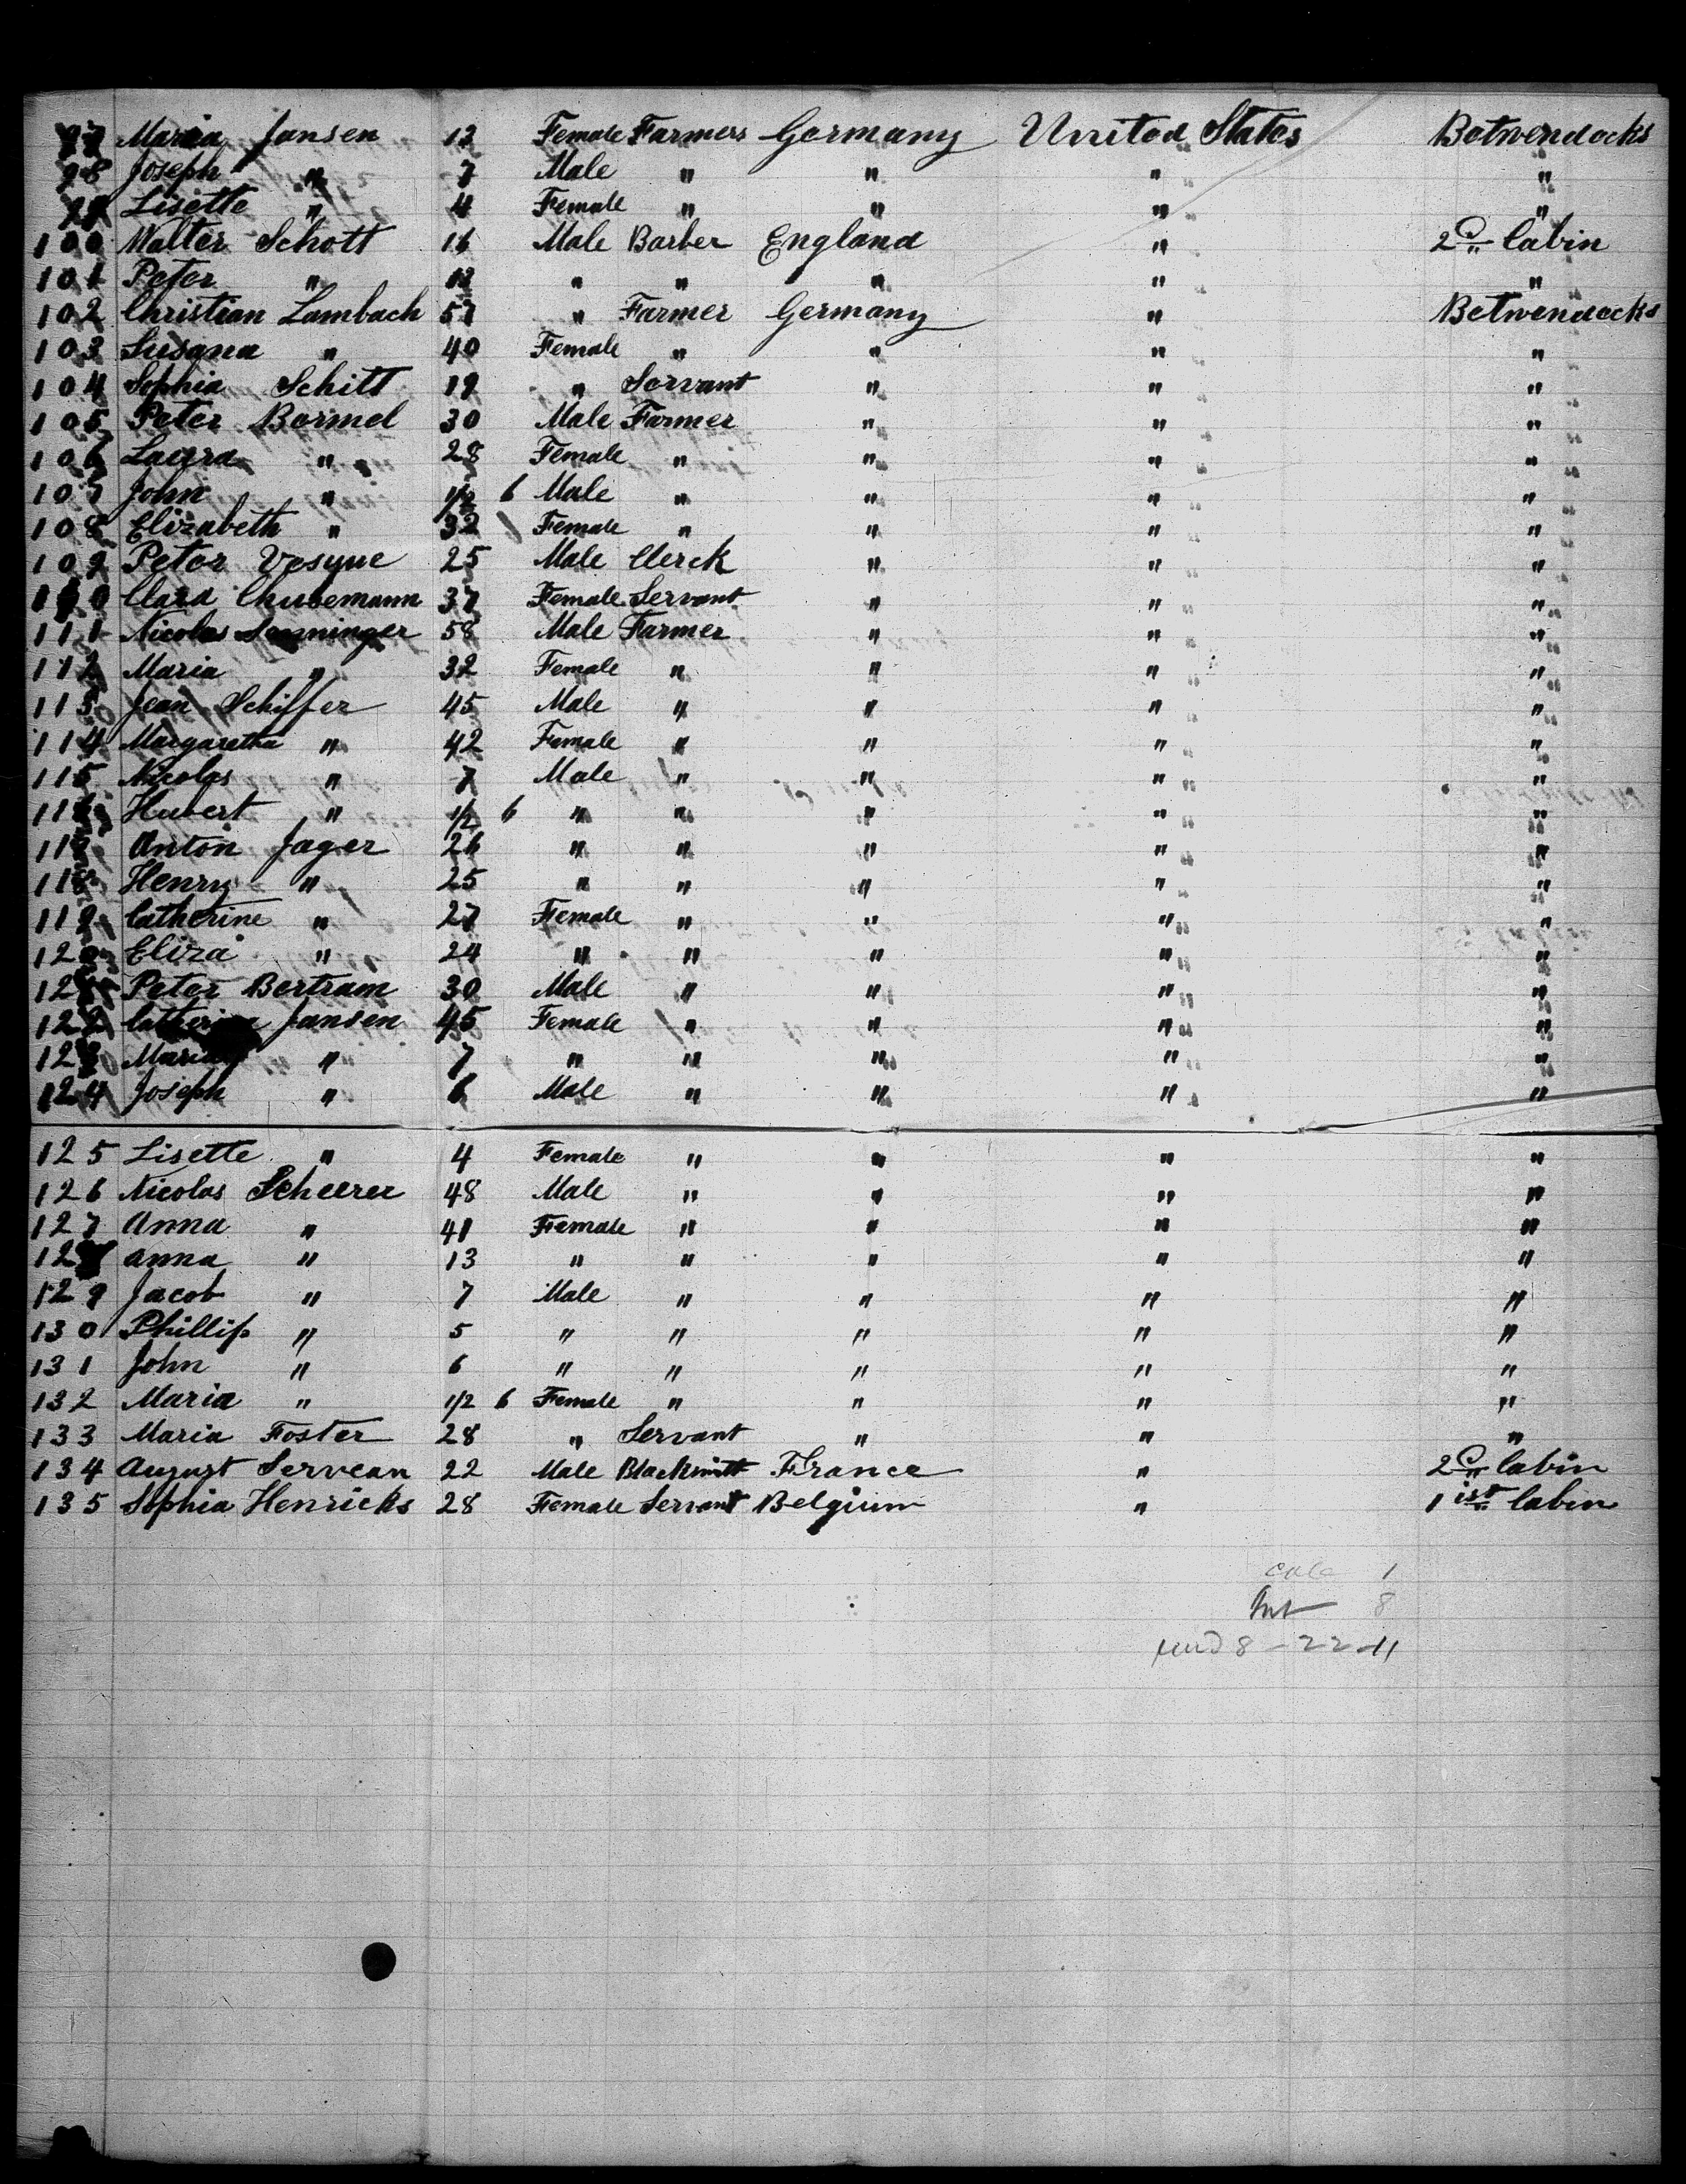 97 Maria Jansen 12 Female Farmers Germany United States Betwendocks
98 Joseph " 7 Male " " " "
99 Lisette " 4 Female " " " "
100 Walter Schott 16 Male Barber England " 2d Cabin
101 Peter " 12 " " " " "
102 Christian Lambach 57 " Farmer Germany " Betwendocks
103 Susana " 40 Female " " " "
104 Sophia Schitt 19 " Servant " " "
105 Peter Bormel 30 Male Farmer " " "
106 Laura " 28 Female " " " "
107 John " 1/2 6 Male " " " "
108 Elizabeth " 32 Female " " " "
109 Peter Vesque 25 Male Clerck " " "
110 Clara 37 Female Servant " " "
111 Nicolas 58 Male Farmer " " "
112 Maria " 32 Female " " " "
113 Jean Schiffer 45 Male " " " "
114 Margaretha " 42 Female " " " "
115 Nicolas " 7 Male " " " "
116 Hubert " 1/2 6 " " " " "
117 Anton Jager 26 " " " " "
118 Henry " 25 " " " " "
119 Catherine " 27 Female " " " "
120 Eliza " 24 " " " " "
121 Peter Bertram 30 Male " " " "
122 Catherina Jansen 45 Female " " " "
123 Maria " 7 " " " " "
124 Joseph " 6 Male " " " "
125 Lisette " 4 Female " " " "
126 Nicolas Scheerer 48 Male " " " "
127 Anna " 41 Female " " " "
128 Anna " 13 " " " " "
129 Jacob " 7 Male " " " "
130 Phillip " 5 " " " " "
131 John " 6 " " " " "
132 Maria " 1/2 6 Female " " " "
133 Maria Foster 28 " Servant " " "
134 August Servean 22 Male Blacksmith France " 2d Cabin
135 Sophia Henricks 28 Female Servant Belgium " 1ist Cabin
1
8
8-22-11